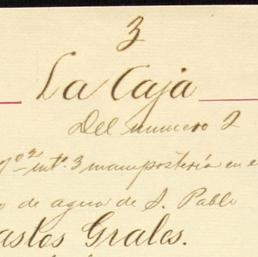 3
La Caja
Del numero 2
intº. 3 mampostería en e
o de agua de S. Pablo
astos Grales.